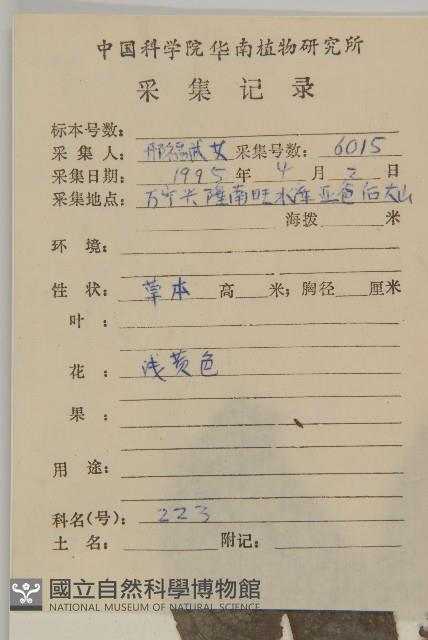 中国科学院华南植物研究所
采集记录
标本号数:
采集人: 邢福武 采集号数: 6015
采集日期: 1995 年 4 月 2 日
采集地点: 万宁兴隆南旺水库 后大山
海拨 米
环境:
性状: 草本 高 米; 胸径 厘米
叶:
花: 浅黄色
果:
用途:
科名(号): 223
土名: 附记:
國立自然科學博物館
NATIONAL MUSEUM OF NATURAL SCIENCE